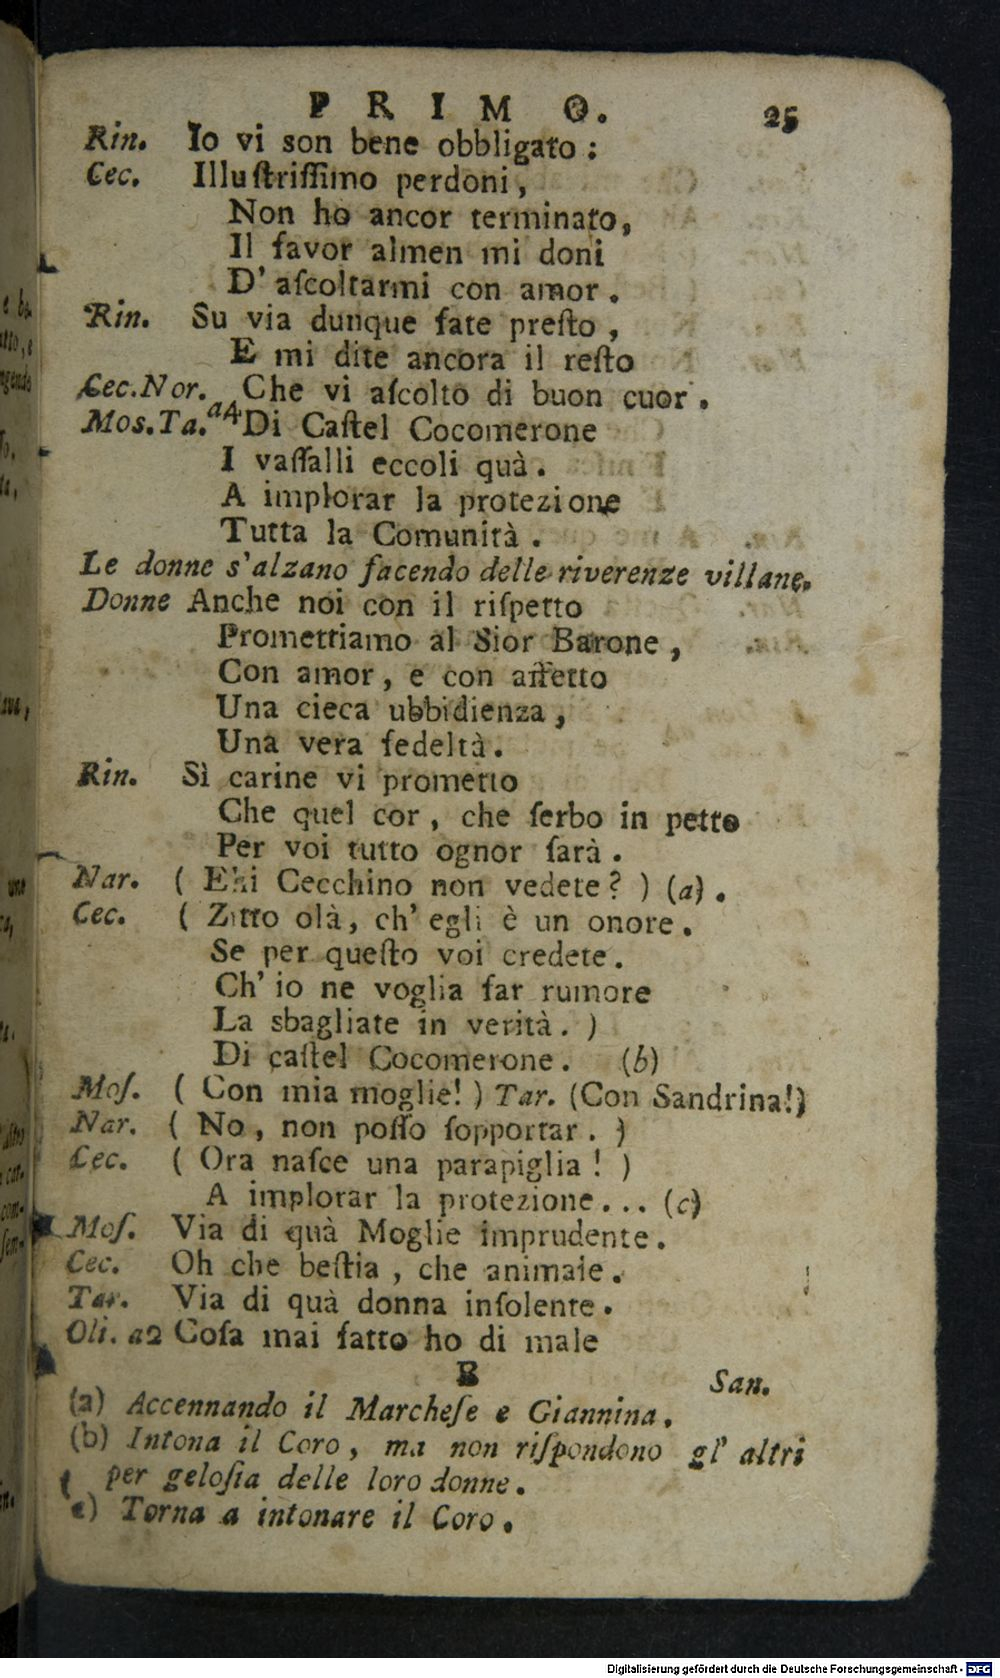 PRIMO. 25
Rin. Io vi son bene obbligato :
Cec. Illuſtriſſimo perdoni ,
Non ho ancor terminato,
Il favor almen mi doni
D' aſcoltarmi con amor .
Rin. Su via dunque fate preſto ,
E mi dite ancora il reſto
Che vi aſcolto di buon cuor .
Cec. Nor.
Mos. Ta. a4 Di Caſtel Cocomerone
I vaſſalli eccoli quà .
A implorar la protezione
Tutta la Comunità .
Le donne s'alzano facendo delle riverenze villane.
Donne Anche noi con il riſpetto
Promettiamo al Sior Barone ,
Con amor , e con affetto
Una cieca ubbidienza ,
Una vera fedeltà .
Rin. Sì carine vi prometto
Che quel cor , che ſerbo in petto
Per voi tutto ognor ſarà .
Nar. ( Ehi Cecchino non vedete ? ) (a) .
Cec. ( Zitto olà, ch' egli è un onore .
Se per queſto voi credete .
Ch' io ne voglia far rumore
La sbagliate in verità . )
Di caſtel Cocomerone . (b)
Moſ. ( Con mia moglie! ) Tar. (Con Sandrina!)
Nar. ( No , non poſſo ſopportar . )
Cec. ( Ora naſce una parapiglia ! )
A implorar la protezione . . . (c)
Moſ. Via di quà Moglie imprudente .
Cec. Oh che beſtia , che animale .
Tar. Via di quà donna inſolente .
Oli. a2 Coſa mai fatto ho di male
B San.
(a) Accennando il Marcheſe e Giannina .
(b) Intona il Coro , ma non riſpondono gl' altri
per geloſia delle loro donne .
c) Torna a intonare il Coro .
Digitalisierung gefördert durch die Deutsche Forschungsgemeinschaft - DFG